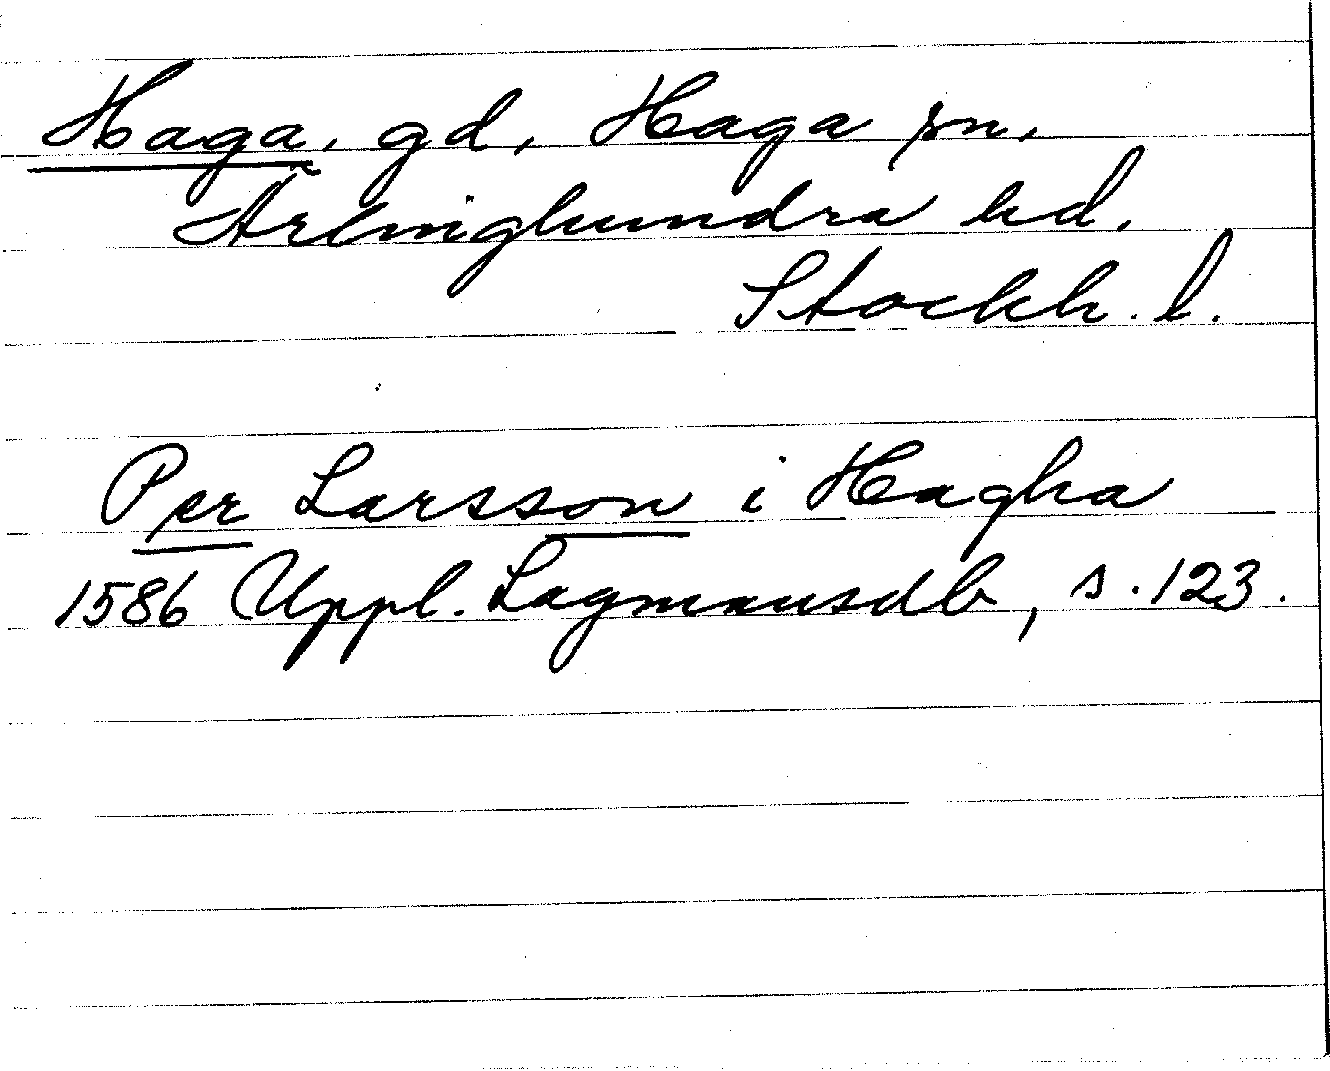 Haga, gd, Haga sn,
Ärlinghundra hd.
Stockh. l.
Per Larsson i Hagha
1586 Uppl. Lagmansdb, s. 123.